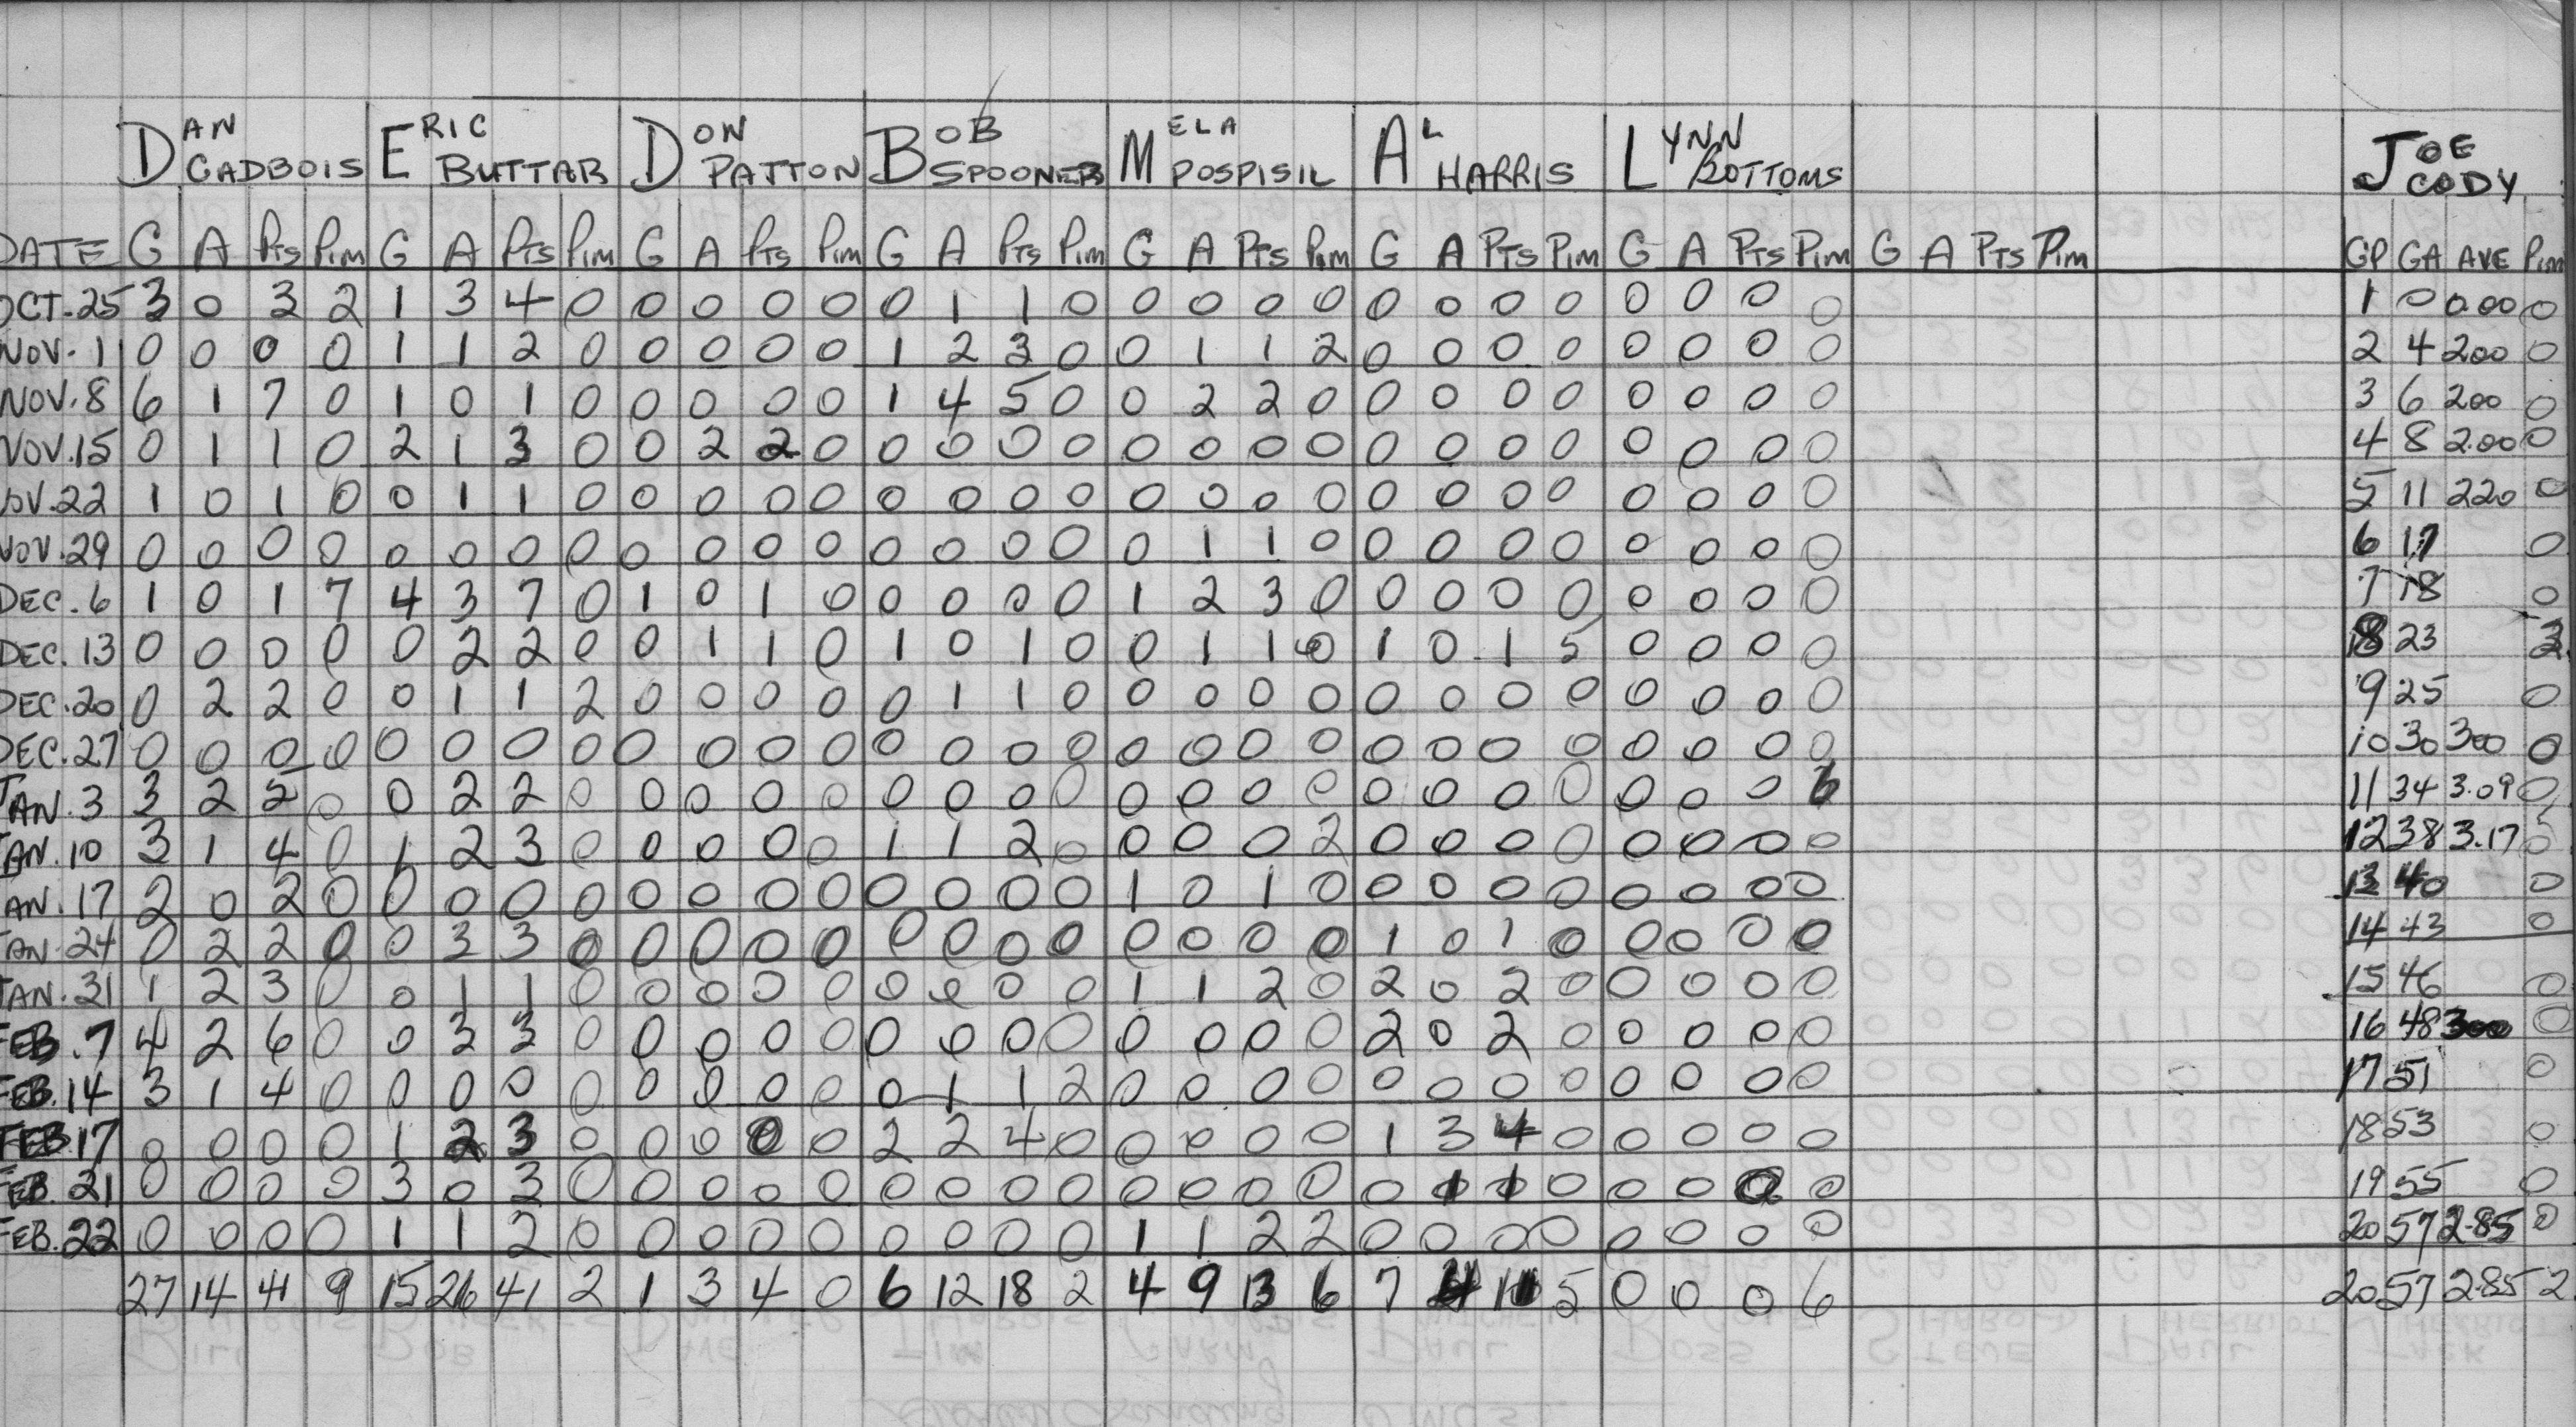 DAN CADBOIS ERIC BUTTAR DON PATTON BOB SPOONER MELA POSPISIL AL HARRIS LYNN BOTTOMS JOE CODY
DATE G A PTS PIM G A PTS PIM G A PTS PIM G A PTS PIM G A PTS PIM G A PTS PIM G A PTS PIM G A PTS PIM GP GA AVE PIM
OCT.25 3 0 3 2 1 3 4 0 0 0 0 0 0 1 1 0 0 0 0 0 0 0 0 0 0 0 0 0 1 0 0.00 0
NOV.1 0 0 0 0 1 1 2 0 0 0 0 0 1 2 3 0 0 1 1 2 0 0 0 0 0 0 0 0 2 4 200 0
NOV.8 6 1 7 0 1 0 1 0 0 0 0 0 1 4 5 0 0 2 2 0 0 0 0 0 0 0 0 0 3 6 200 0
NOV.15 0 1 1 0 2 1 3 0 0 2 2 0 0 0 0 0 0 0 0 0 0 0 0 0 0 0 0 0 4 8 2.00 0
NOV.22 1 0 1 0 0 1 1 0 0 0 0 0 0 0 0 0 0 0 0 0 0 0 0 0 0 0 0 0 5 11 220 0
NOV.29 0 0 0 0 0 0 0 0 0 0 0 0 0 0 0 0 0 1 1 0 0 0 0 0 0 0 0 0 6 17 0
DEC.6 1 0 1 7 4 3 7 0 1 0 1 0 0 0 0 0 1 2 3 0 0 0 0 0 0 0 0 0 7 18 0
DEC.13 0 0 0 0 0 2 2 0 0 1 1 0 1 0 1 0 0 1 1 0 1 0 1 5 0 0 0 0 8 23 2
DEC.20 0 2 2 0 0 1 1 2 0 0 0 0 0 1 1 0 0 0 0 0 0 0 0 0 0 0 0 0 9 25 0
DEC.27 0 0 0 0 0 0 0 0 0 0 0 0 0 0 0 0 0 0 0 0 0 0 0 0 0 0 0 0 10 30 300 0
JAN.3 3 2 5 0 0 2 2 0 0 0 0 0 0 0 0 0 0 0 0 0 0 0 0 0 0 0 0 6 11 34 3.09 0
JAN.10 3 1 4 0 1 2 3 0 0 0 0 0 1 1 2 0 0 0 0 2 0 0 0 0 0 0 0 0 12 38 3.17 0
JAN.17 2 0 2 0 0 0 0 0 0 0 0 0 0 0 0 0 1 0 1 0 0 0 0 0 0 0 0 0 13 40 0
JAN.24 0 2 2 0 0 3 3 0 0 0 0 0 0 0 0 0 0 0 0 0 1 0 1 0 0 0 0 0 14 43 0
JAN.31 1 2 3 0 0 1 1 0 0 0 0 0 0 0 0 0 1 1 2 0 2 0 2 0 0 0 0 0 15 46 0
FEB.7 4 2 6 0 0 3 3 0 0 0 0 0 0 0 0 0 0 0 0 0 2 0 2 0 0 0 0 0 16 48 300 0
FEB.14 3 1 4 0 0 0 0 0 0 0 0 0 0 1 1 2 0 0 0 0 0 0 0 0 0 0 0 0 17 51 0
FEB.17 0 0 0 0 1 2 3 0 0 0 0 0 2 2 4 0 0 0 0 0 1 3 4 0 0 0 0 0 18 53 0
FEB.21 0 0 0 0 3 0 3 0 0 0 0 0 0 0 0 0 0 0 0 0 0 1 1 0 0 0 0 0 19 55 0
FEB.22 0 0 0 0 1 1 2 0 0 0 0 0 0 0 0 0 1 1 2 2 0 0 0 0 0 0 0 0 20 57 2.85 0
27 14 41 9 15 26 41 2 1 3 4 0 6 12 18 2 4 9 13 6 7 4 11 5 0 0 0 6 20 57 2.85 2